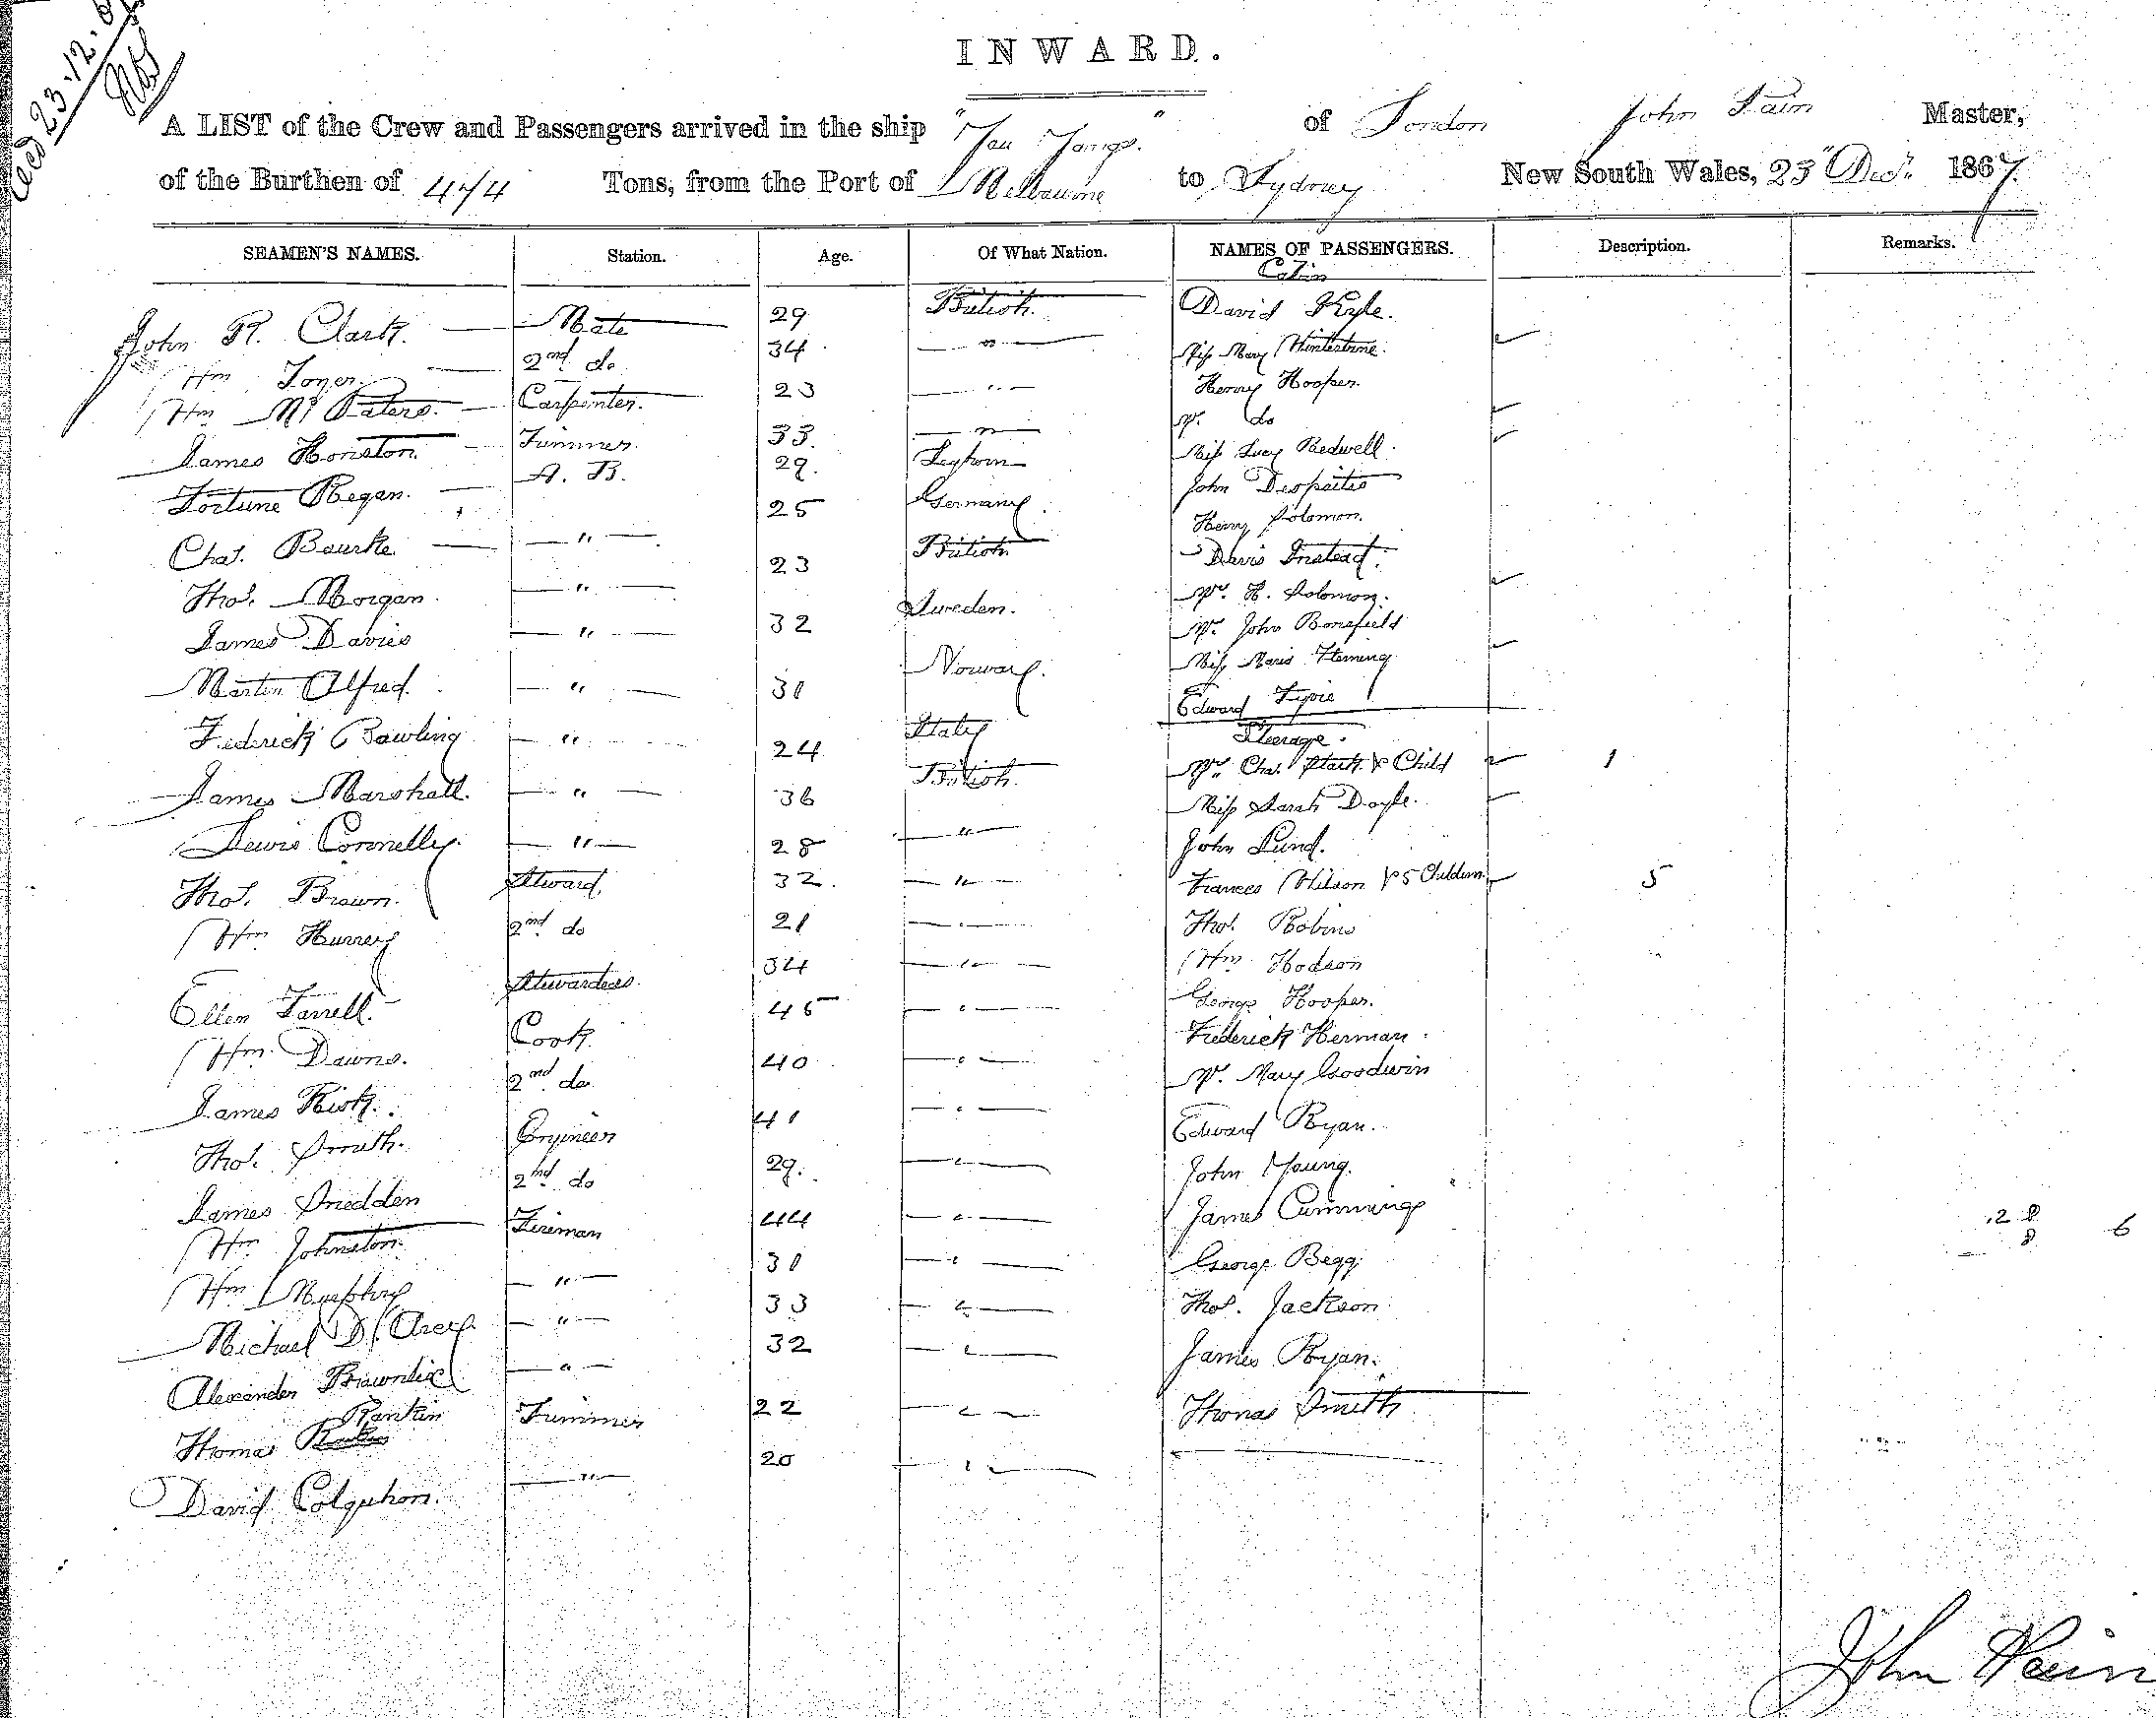 INWARD.
A LIST of the Crew and Passengers arrived in the ship "You Yangs" of London John Master,
of the Burthen of 474 Tons, from the Port of Melbourne to Sydney New South Wales, 23" Decr. 1867
SEAMEN'S NAMES. Station. Age. Of What Nation. NAMES OF PASSENGERS. Description. Remarks.
Cabin
John R. Clark Mate 29 British David Kyle.
Wm Toner 2nd do 34 " Miss Mary
Wm Mc Paters. Carpenter. 23 " Henry Hooper.
James Houston Trimmer 33. " Mrs. do
Fortune Regan. A. B. 29. Leghorn Miss Lucy Redwell.
John
Chas. Bourke " 25 Germany. Henry Solomon.
Thos. Morgan. " 23 British Davis
Mrs. H. Solomon.
James Davies " 32 Sweden. Mr. John Bonefield
Miss Maria Fleming
Martin Alfred. " 31 Norway. Edward Fyvie
Steerage.
Frederick Bawling " 24 Italy Mrs. Chas. Stark & Child 1
James Marshall. " 36 British. Miss Sarah Doyle.
Lewis Connelly. " 28 " John Lund.
Thos. Brown. Steward, 32. " Frances Wilson & 5 Children 5
Wm Hurrey 2nd do 21 " Thos. Robins
Wm Hodson
Ellen Farrell. Stewardess. 34 " George Hooper.
Wm. Downs. Cook. 45 " Frederick Herman.
James Risk. 2nd do 40 " Mrs. Mary Goodwin
Thos. Smith. Engineer 41 " Edward Ryan.
James Snedden 2nd do 29. " John Young.
Wm Johnston. Fireman 44 " James Cummings 28 6
8
Wm Murphy " 31 " George Begg
Michael D'Arcy. " 33 " Thos. Jackson
Alexander Brownlie " 32 " James Ryan.
Rankin
Thomas Trimmer 22 " Thomas Smith
David Colquhon. " 20 "
John